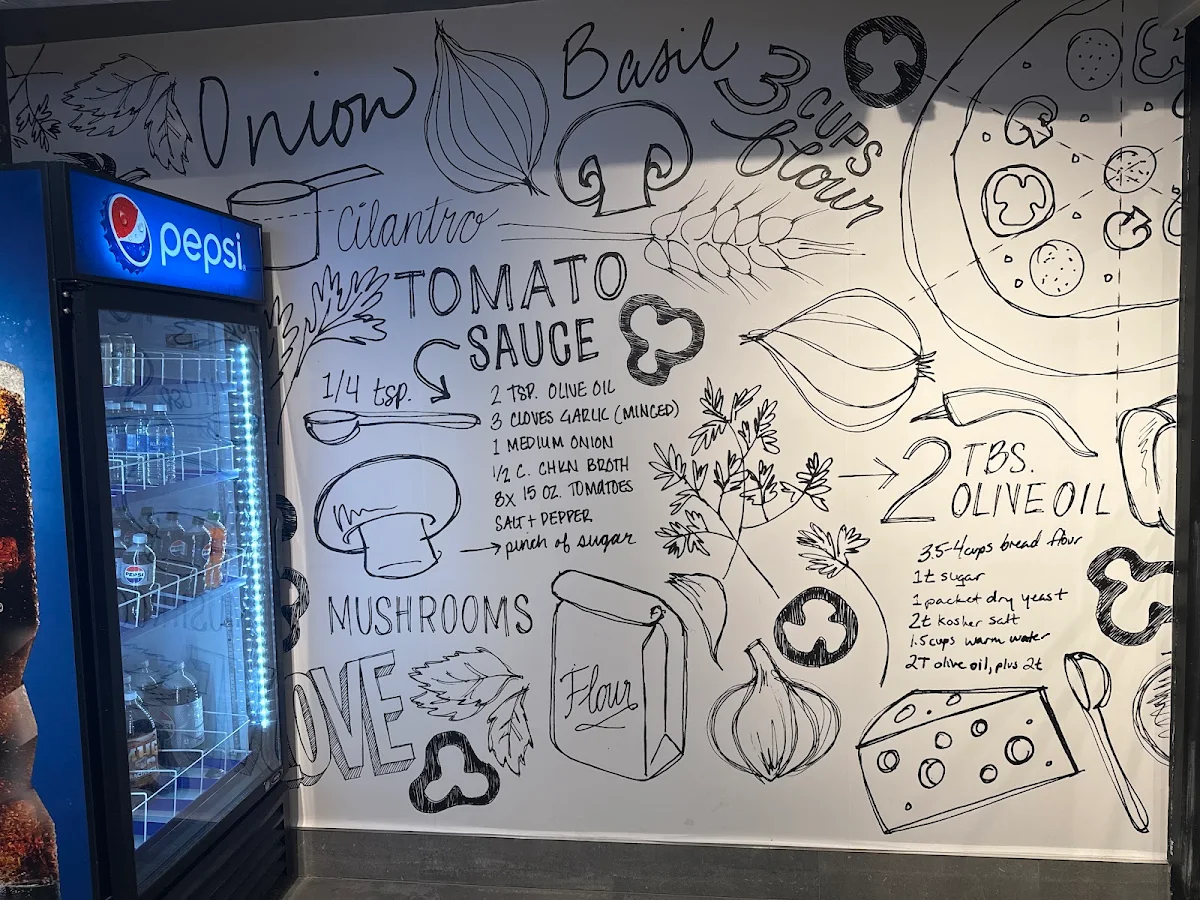 Onion
Basil
3
CUPS
flour
pepsi
Cilantro
TOMATO
SAUCE
1/4 tsp.
2 TSP. OLIVE OIL
3 CLOVES GARLIC (MINCED)
1 MEDIUM ONION
1/2 C. CHKN BROTH
8X 15 OZ. TOMATOES
SALT + PEPPER
pinch of sugar
MUSHROOMS
OVE
Flour
2 TBS.
OLIVE OIL
3.5-4 cups bread flour
1t sugar
1 packet dry yeast
2t kosher salt
1.5 cups warm water
2T olive oil, plus 2t
pepsi